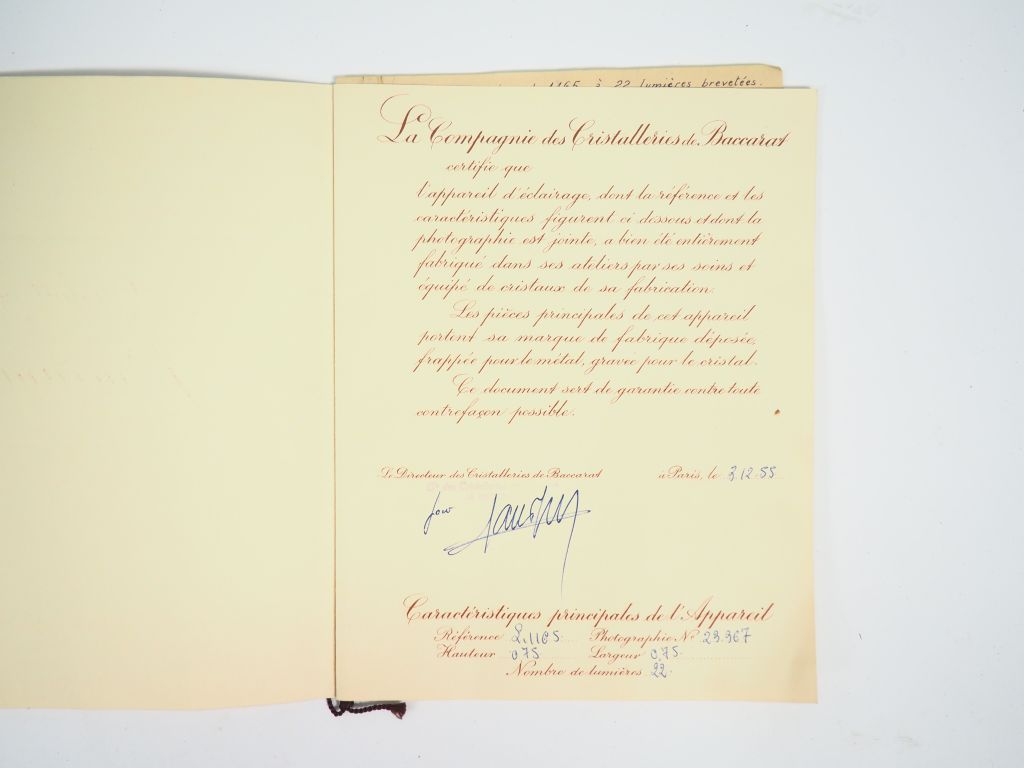 1165 à 22 lumières brevetées.
La Compagnie des Cristalleries de Baccarat
certifie que
l'appareil d'éclairage, dont la référence et les
caractéristiques figurent ci dessous et dont la
photographie est jointe, a bien été entièrement
fabriqué dans ses ateliers par ses soins et
équipé de cristaux de sa fabrication.
Les pièces principales de cet appareil
portent sa marque de fabrique déposée,
frappée pour le métal, gravée pour le cristal.
Ce document sert de garantie contre toute
contrefaçon possible.
Le Directeur des Cristalleries de Baccarat à Paris, le 3.12.55
pour
Caractéristiques principales de l'Appareil
Référence L.1165 Photographie N° 23.367
Hauteur 0,75 Largeur 0,75
Nombre de lumières 22